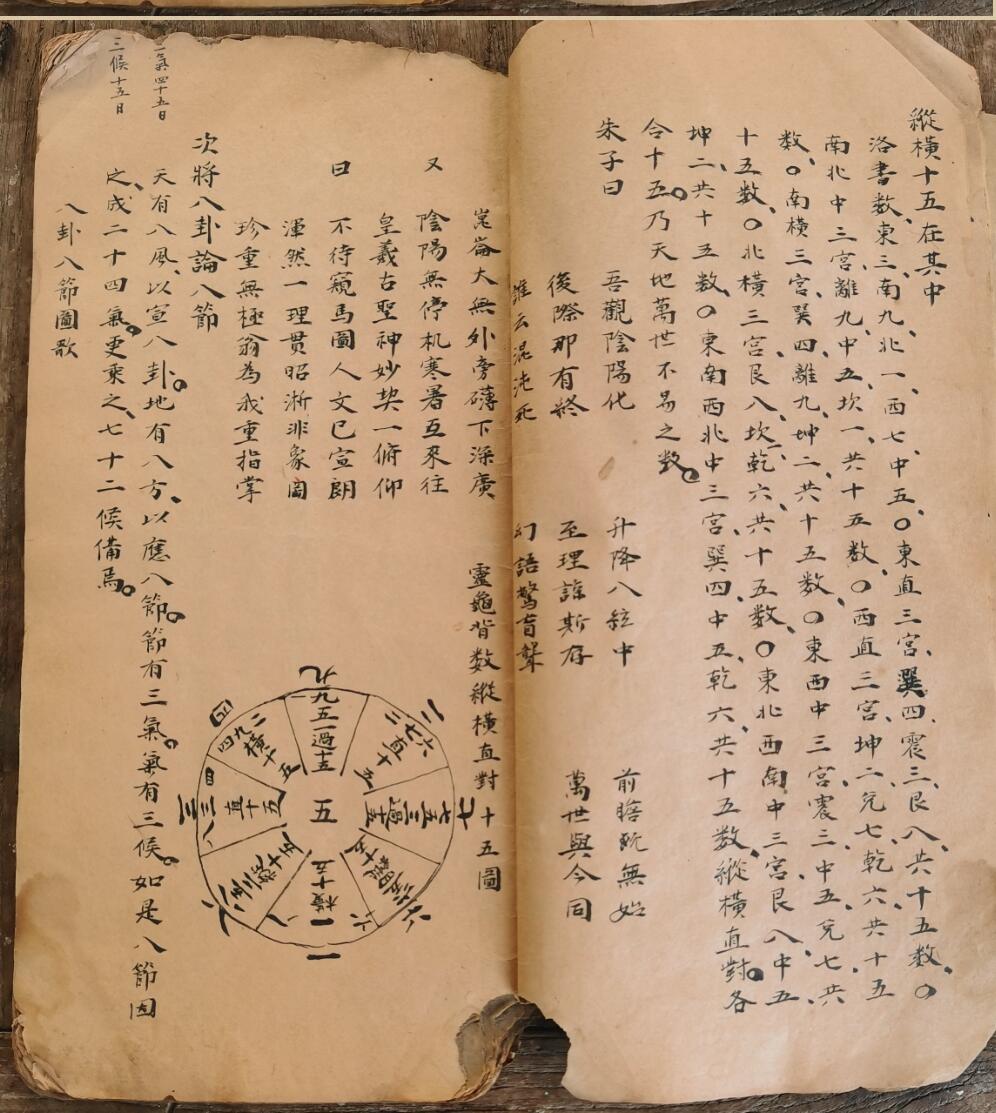 縱橫十五在其中
洛書数、東三、南九、北一、西七、中五、〇東直三宮、巽四、震三、艮八、共十五数、〇
南北中三宮、離九、中五、坎一、共十五数、〇西直三宮、坤二、兑七、乾六、共十五
数、〇南橫三宮、巽四、離九、坤二共十五数、〇東西中三宮震三、中五、兑七、共
十五数、〇北橫三宮、艮八、坎一、乾六共十五数、〇東北西南中三宮艮八、中五、
坤二、共十五数、〇東南西北中三宮、巽四、中五、乾六、共十五数、縱橫直對。各
合十五。乃天地萬世不易之数。
朱子曰
吾觀陰陽化 升降八紘中 前瞻既無始
後際那有終 至理諒斯存 萬世與今同
誰云混沌死 幻語驚盲聾
崑崙大無外旁礴下深廣
又 陰陽無停机寒暑互來往
皇羲古聖神妙契一俯仰
曰 不待窺馬圖人文已宣朗
渾然一理贯昭淅非象罔
珍重無極翁為我重指掌
靈龜背数縱橫直對十五圖
九
二
七
六
一
八
三
四
九五一過十五
二七六直十五
七五三過十五
六一八橫十五
八三四直十五
四九二橫十五
五
次將八卦論八節
天有八風、以宣八卦。地有八方、以應八節。節有三氣。氣有三候。如是八節因
之、成二十四氣。更乘之、七十二候備焉。
八卦八節圖歌
一氣四十五日
三候十五日